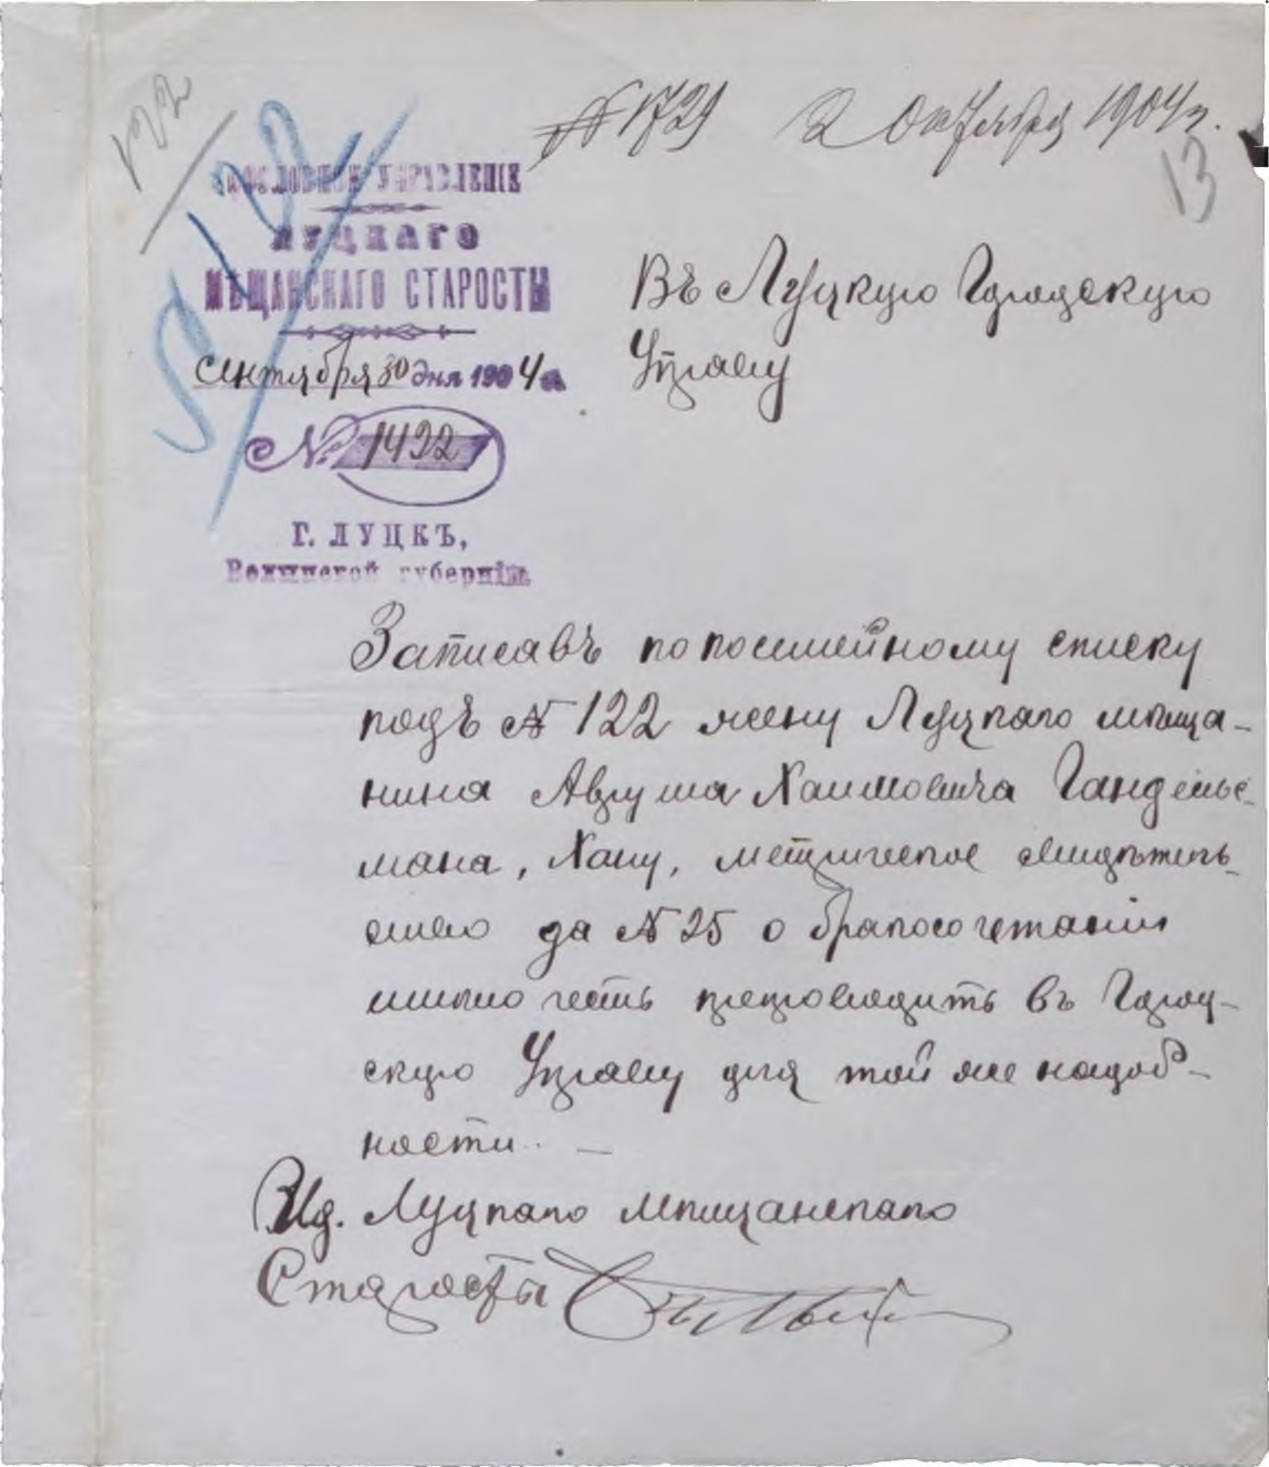 122
№ 1729 2 Октября 1904 г.
13
СОСЛОВНОЕ УПРАВЛЕНІЕ
ЛУЦКАГО
МѢЩАНСКАГО СТАРОСТЫ
Сентября 30 дня 1904 г.
№ 1422
Г. ЛУЦКЪ,
Волынской губерніи.
Въ Луцкую Городскую
Управу
Записавъ по посемейному списку
подъ № 122 жену Луцкаго мѣща-
нина Аврума Хаимовича Гандель-
мана, Хану, метрическое свидѣтель-
ство за № 25 о бракосочетаніи
имѣю честь препроводить въ Город-
скую Управу для той же надоб-
ности. —
Ид. Луцкаго Мѣщанскаго
Старосты